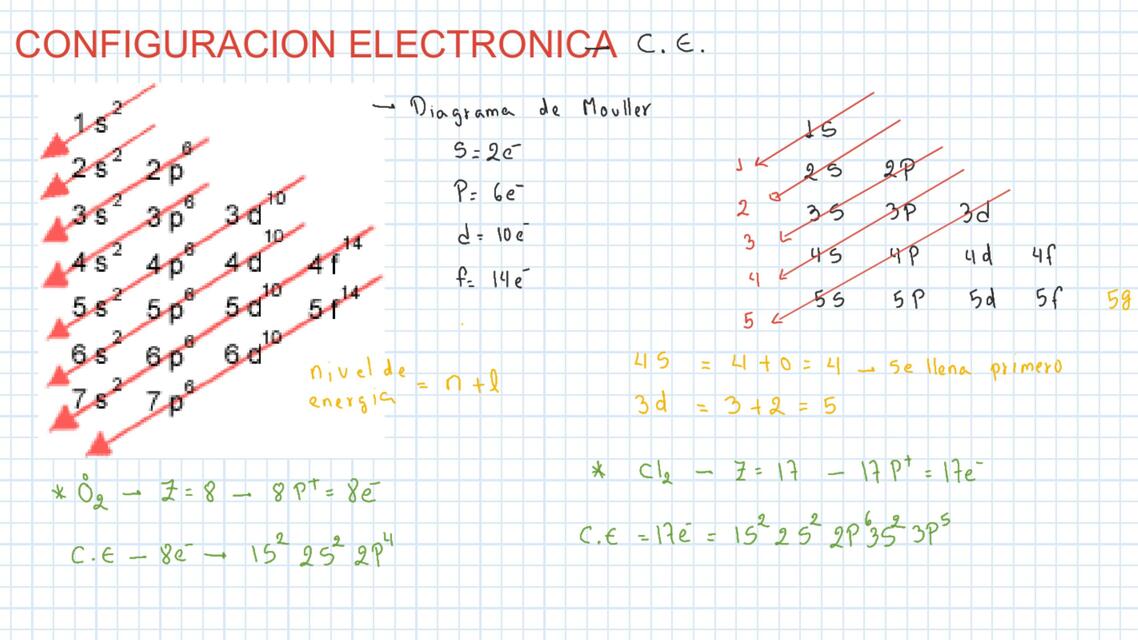 CONFIGURACION ELECTRONICA – C.E.
1s² 
2s² 2p⁶
3s² 3p⁶ 3d¹⁰
4s² 4p⁶ 4d¹⁰ 4f¹⁴
5s² 5p⁶ 5d¹⁰ 5f¹⁴
6s² 6p⁶ 6d¹⁰
7s² 7p⁶
→ Diagrama de Mouller
S = 2e⁻
P = 6e⁻
d = 10e⁻
f = 14e⁻
1S
1
2S 2P
2
3S 3P 3d
3
4S 4P 4d 4f
4
5S 5P 5d 5f 5g
5
nivel de
energia = n + l
4S = 4 + 0 = 4 → Se llena primero
3d = 3 + 2 = 5
* O₂ → Z = 8 – 8P⁺ = 8e⁻
C.E – 8e⁻ → 1S² 2S² 2P⁴
* Cl₂ – Z = 17 – 17P⁺ = 17e⁻
C.E = 17e⁻ = 1S² 2S² 2P⁶ 3S² 3P⁵